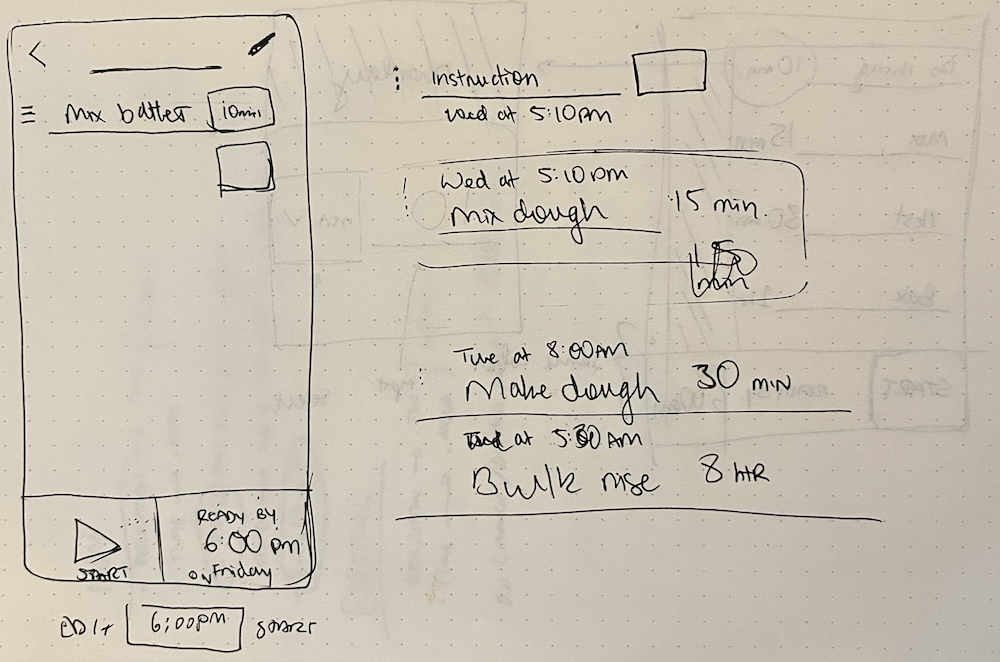 Mix batter 10min
START
READY BY
6:00 pm
on Friday
EDIT 6:00pm
Instruction
Wed at 5:10pm
Wed at 5:10pm
Mix dough 15 min.
15
min
Tue at 8:00AM
Make dough 30 MIN
at 5:30 AM
Bulk rise 8 HR